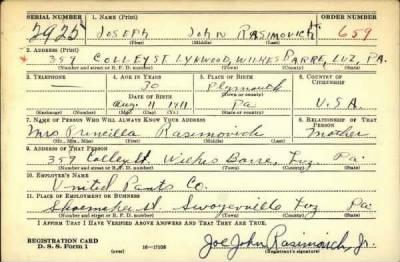 SERIAL NUMBER 1. NAME (Print) ORDER NUMBER
2925 JOSEPH JOHN RASIMOVICH 659
(First) (Middle) (Last)
2. ADDRESS (Print)
359 COLLEY ST LYNWOOD, WILKES BARRE, LUZ, PA.
(Number and street or R. F. D. number) (Town) (County) (State)
3. TELEPHONE 4. AGE IN YEARS 5. PLACE OF BIRTH 6. COUNTRY OF CITIZENSHIP
— 30 Plymouth
DATE OF BIRTH (Town or county)
Aug 11 1911 Pa U.S.A.
(Exchange) (Number) (Mo.) (Day) (Yr.) (State or country)
7. NAME OF PERSON WHO WILL ALWAYS KNOW YOUR ADDRESS 8. RELATIONSHIP OF THAT PERSON
Mrs Princilla Rasimovich Mother
(Mr., Mrs., Miss) (First) (Middle) (Last)
9. ADDRESS OF THAT PERSON
359 Colley St. Wilkes Barre, Luz, Pa.
(Number and street or R. F. D. number) (Town) (County) (State)
10. EMPLOYER'S NAME
United Pants Co.
11. PLACE OF EMPLOYMENT OR BUSINESS
Shoemaker St. Swoyerville Luz Pa
(Number and street or R. F. D. number) (Town) (County) (State)
I AFFIRM THAT I HAVE VERIFIED ABOVE ANSWERS AND THAT THEY ARE TRUE.
REGISTRATION CARD
D. S. S. Form 1 (over) 16—17105 Joe John Rasimovich Jr.
(Registrant's signature)